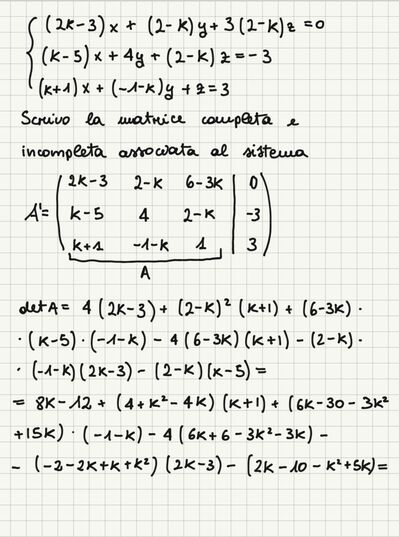 (2k-3)x + (2-k)y + 3(2-k)z = 0
(k-5)x + 4y + (2-k)z = -3
(k+1)x + (-1-k)y + z = 3
Scrivo la matrice completa e
incompleta associata al sistema
2k-3 2-k 6-3k | 0
A' = k-5 4 2-k | -3
k+1 -1-k 1 | 3
A
det A = 4(2k-3) + (2-k)² (k+1) + (6-3k) ·
· (k-5) · (-1-k) - 4(6-3k)(k+1) - (2-k) ·
· (-1-k)(2k-3) - (2-k)(k-5) =
= 8k-12 + (4+k²-4k)(k+1) + (6k-30-3k²
+15k) · (-1-k) - 4(6k+6-3k²-3k) -
- (-2-2k+k+k²)(2k-3) - (2k-10-k²+5k) =